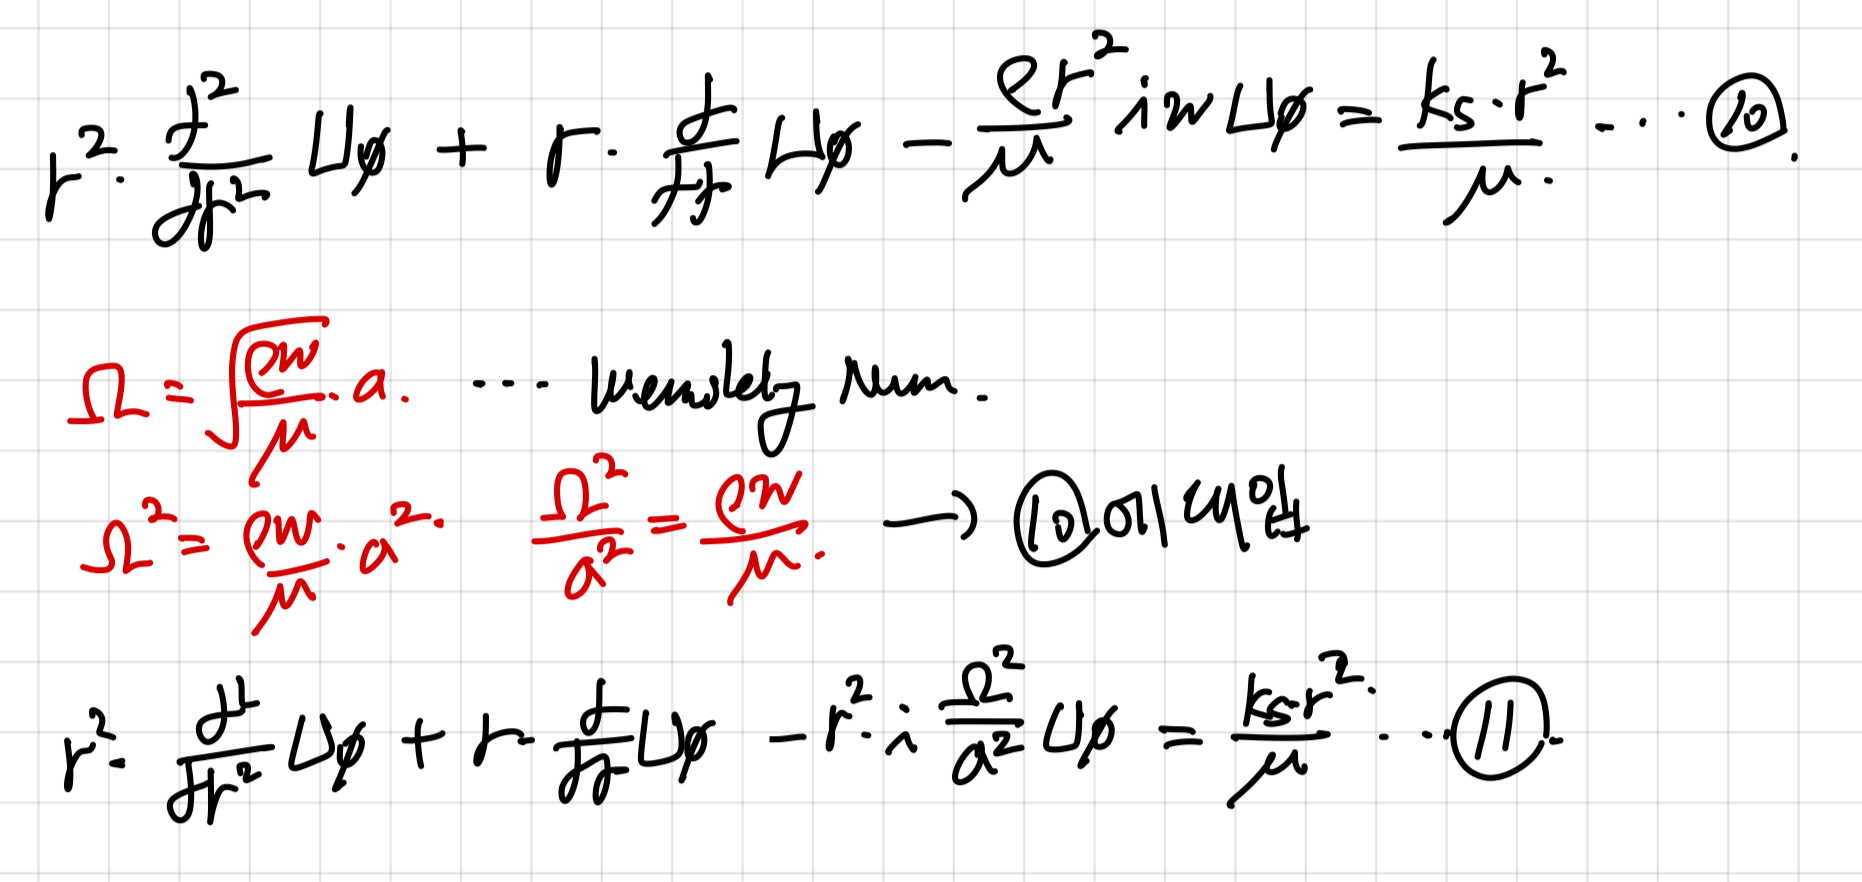 r²· d²/dr² Uφ + r· d/dr Uφ − ρr²/μ iw Uφ = ks·r²/μ. ··· ⑩.
Ω = √(ρw/μ)·a. ··· Wemsley Num.
Ω² = ρw/μ·a². Ω²/a² = ρw/μ. → ⑩에 대입
r²· d²/dr² Uφ + r· d/dr Uφ − r²·i Ω²/a² Uφ = ks·r²/μ. ··· ⑪.